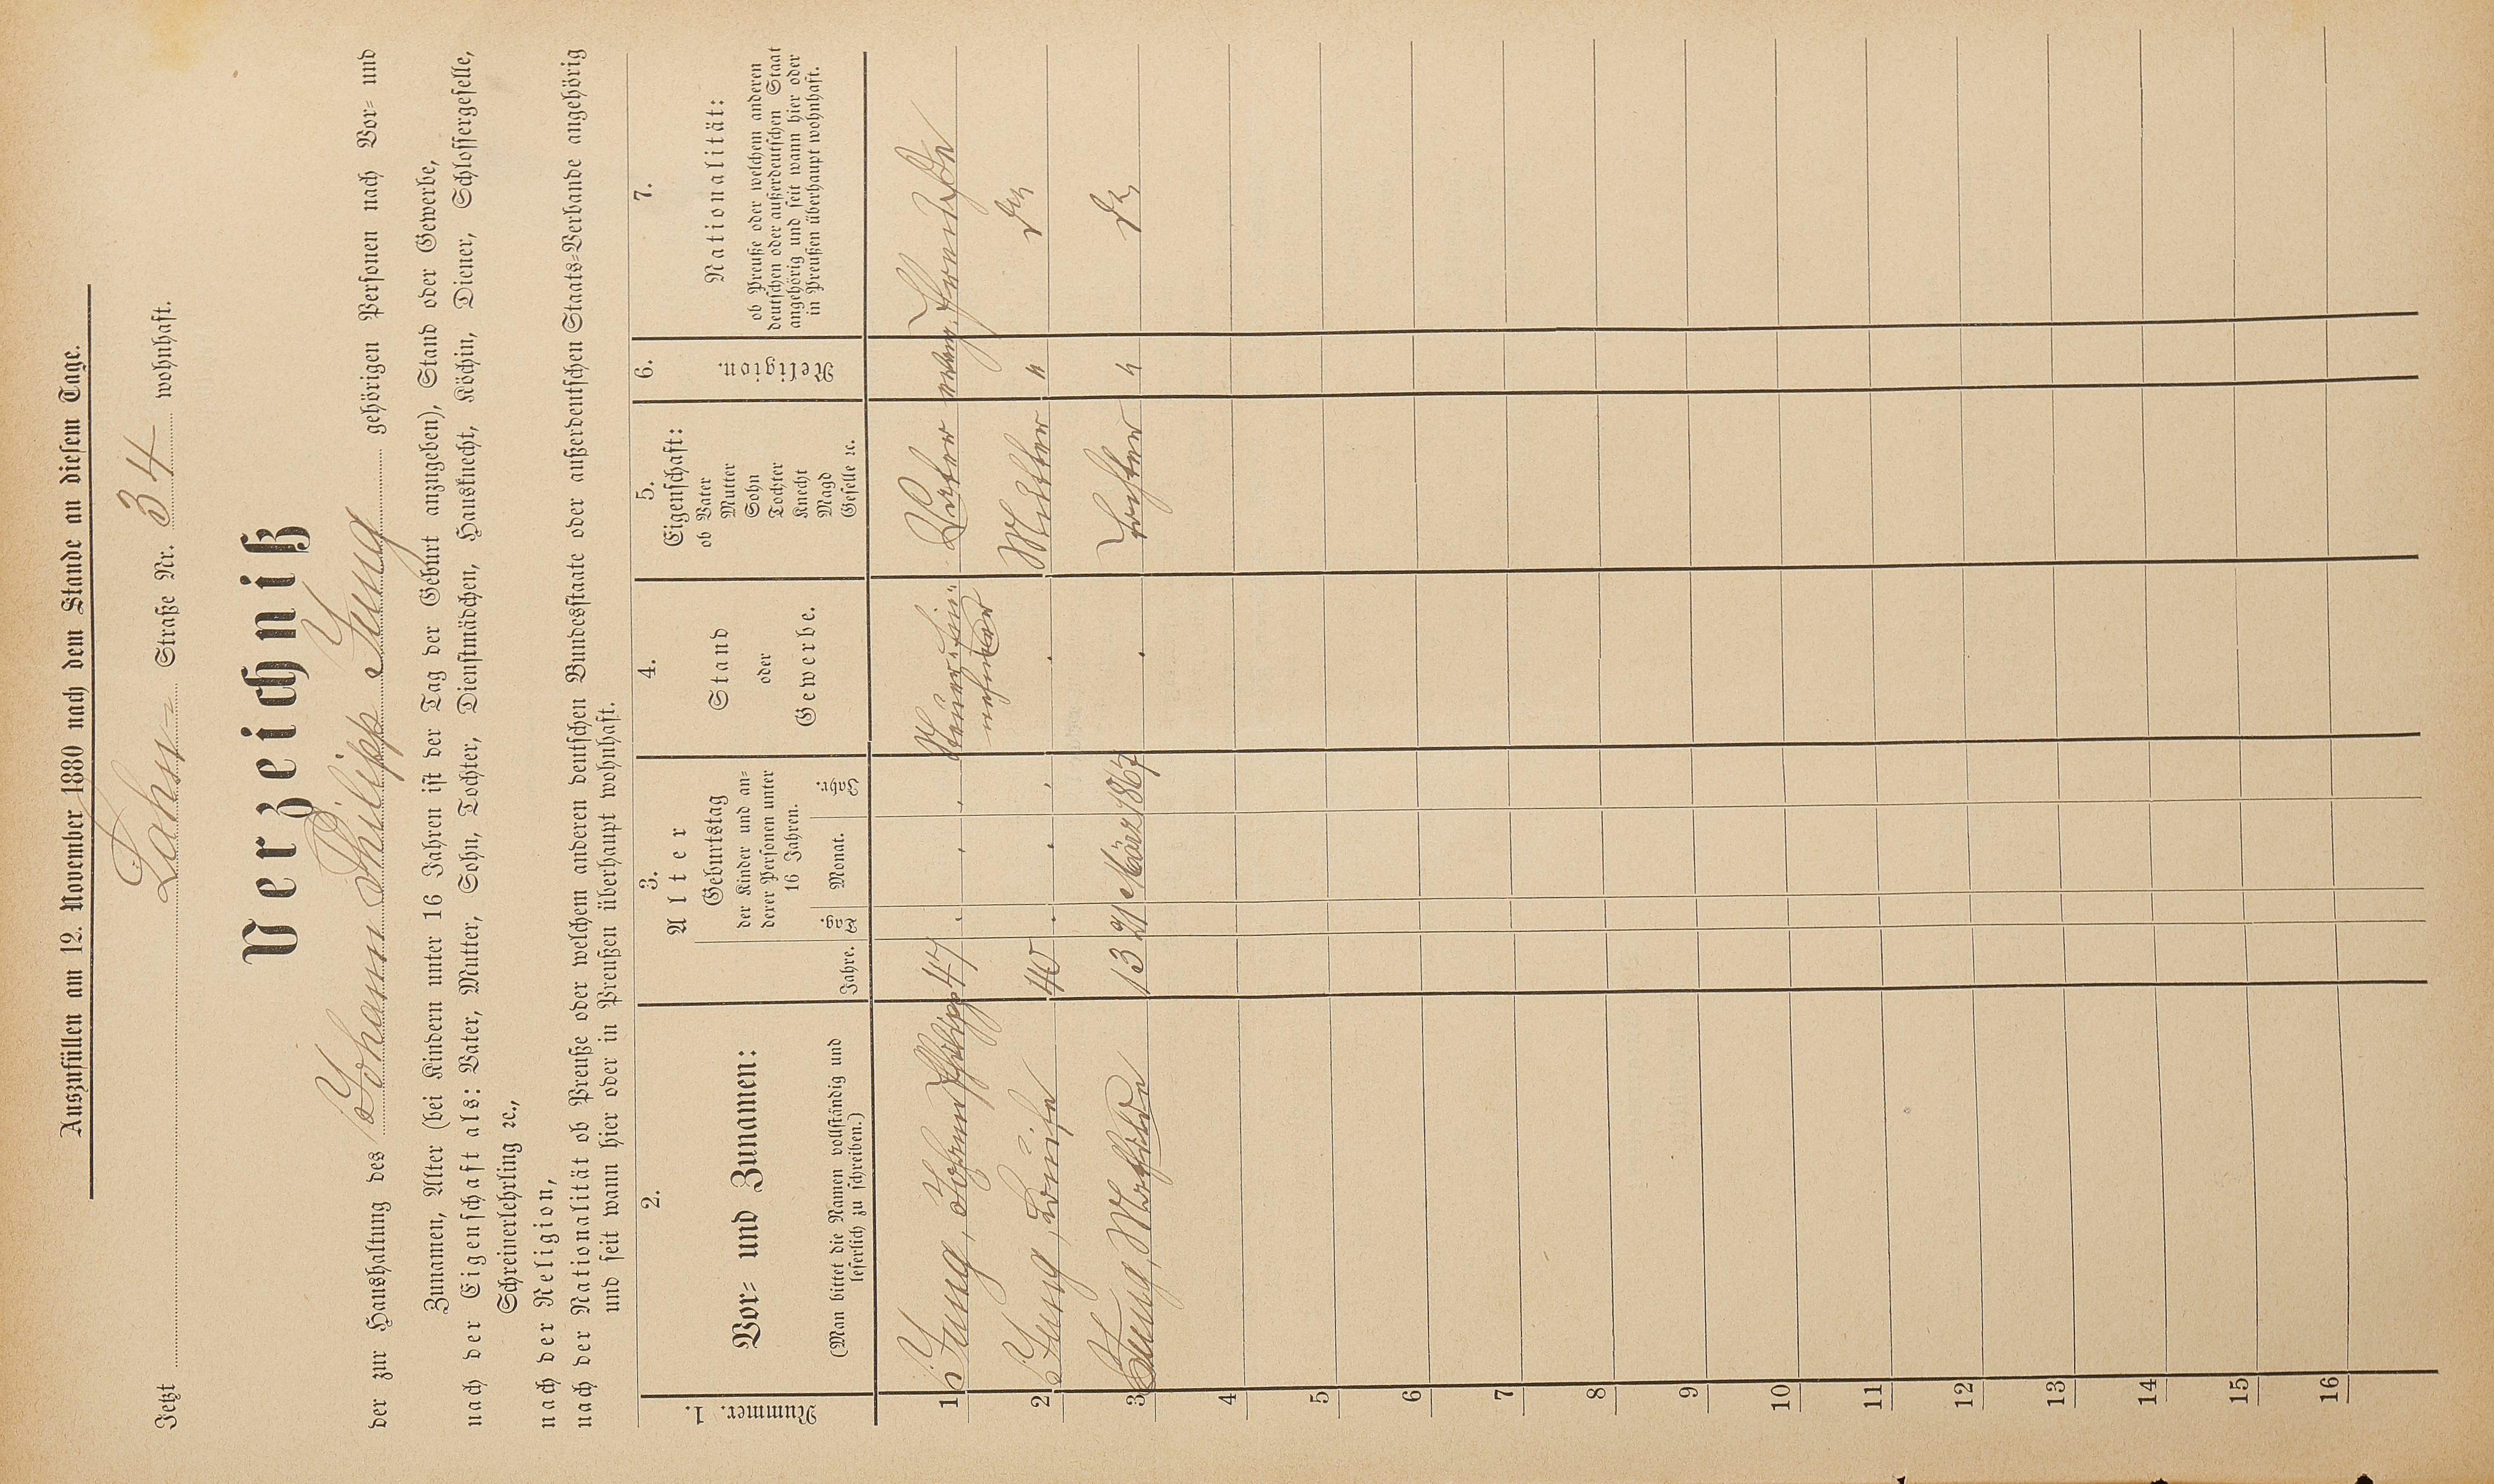 Auszufüllen am 12. November 1880 nach dem Stande an diesem Tage.
Jetzt Lahn- Straße Nr. 34 wohnhaft.
Verzeichniß
der zur Haushaltung des Johann Philipp Jung gehörigen Personen nach Vor- und
Zunamen, Alter (bei Kindern unter 16 Jahren ist der Tag der Geburt anzugeben), Stand oder Gewerbe,
nach der Eigenschaft als: Vater, Mutter, Sohn, Tochter, Dienstmädchen, Hausknecht, Köchin, Diener, Schlossergeselle,
Schreinerlehrling ꝛc.,
nach der Religion,
nach der Nationalität ob Preuße oder welchem anderen deutschen Bundesstaate oder außerdeutschen Staats-Verbande angehörig
und seit wann hier oder in Preußen überhaupt wohnhaft.
Nummer. 1.
2.
Vor- und Zunamen:
(Man bittet die Namen vollständig und
leserlich zu schreiben.)
3.
Alter
Jahre.
Geburtstag
der Kinder und an-
derer Personen unter
16 Jahren.
Tag.
Monat.
Jahr.
4.
Stand
oder
Gewerbe.
5.
Eigenschaft:
ob Vater
Mutter
Sohn
Tochter
Knecht
Magd
Geselle ꝛc.
6.
Religion.
7.
Nationalität:
ob Preuße oder welchem anderen
deutschen oder außerdeutschen Staat
angehörig und seit wann hier oder
in Preußen überhaupt wohnhaft.
1 Jung, Johann Philipp 47 Steuer-Ein- Vater evang. Preuße
nehmer
2 Jung, Louise 40 Mutter "
3 Jung, Mathilde 13 21 März 1867 Tochter "
4
5
6
7
8
9
10
11
12
13
14
15
16